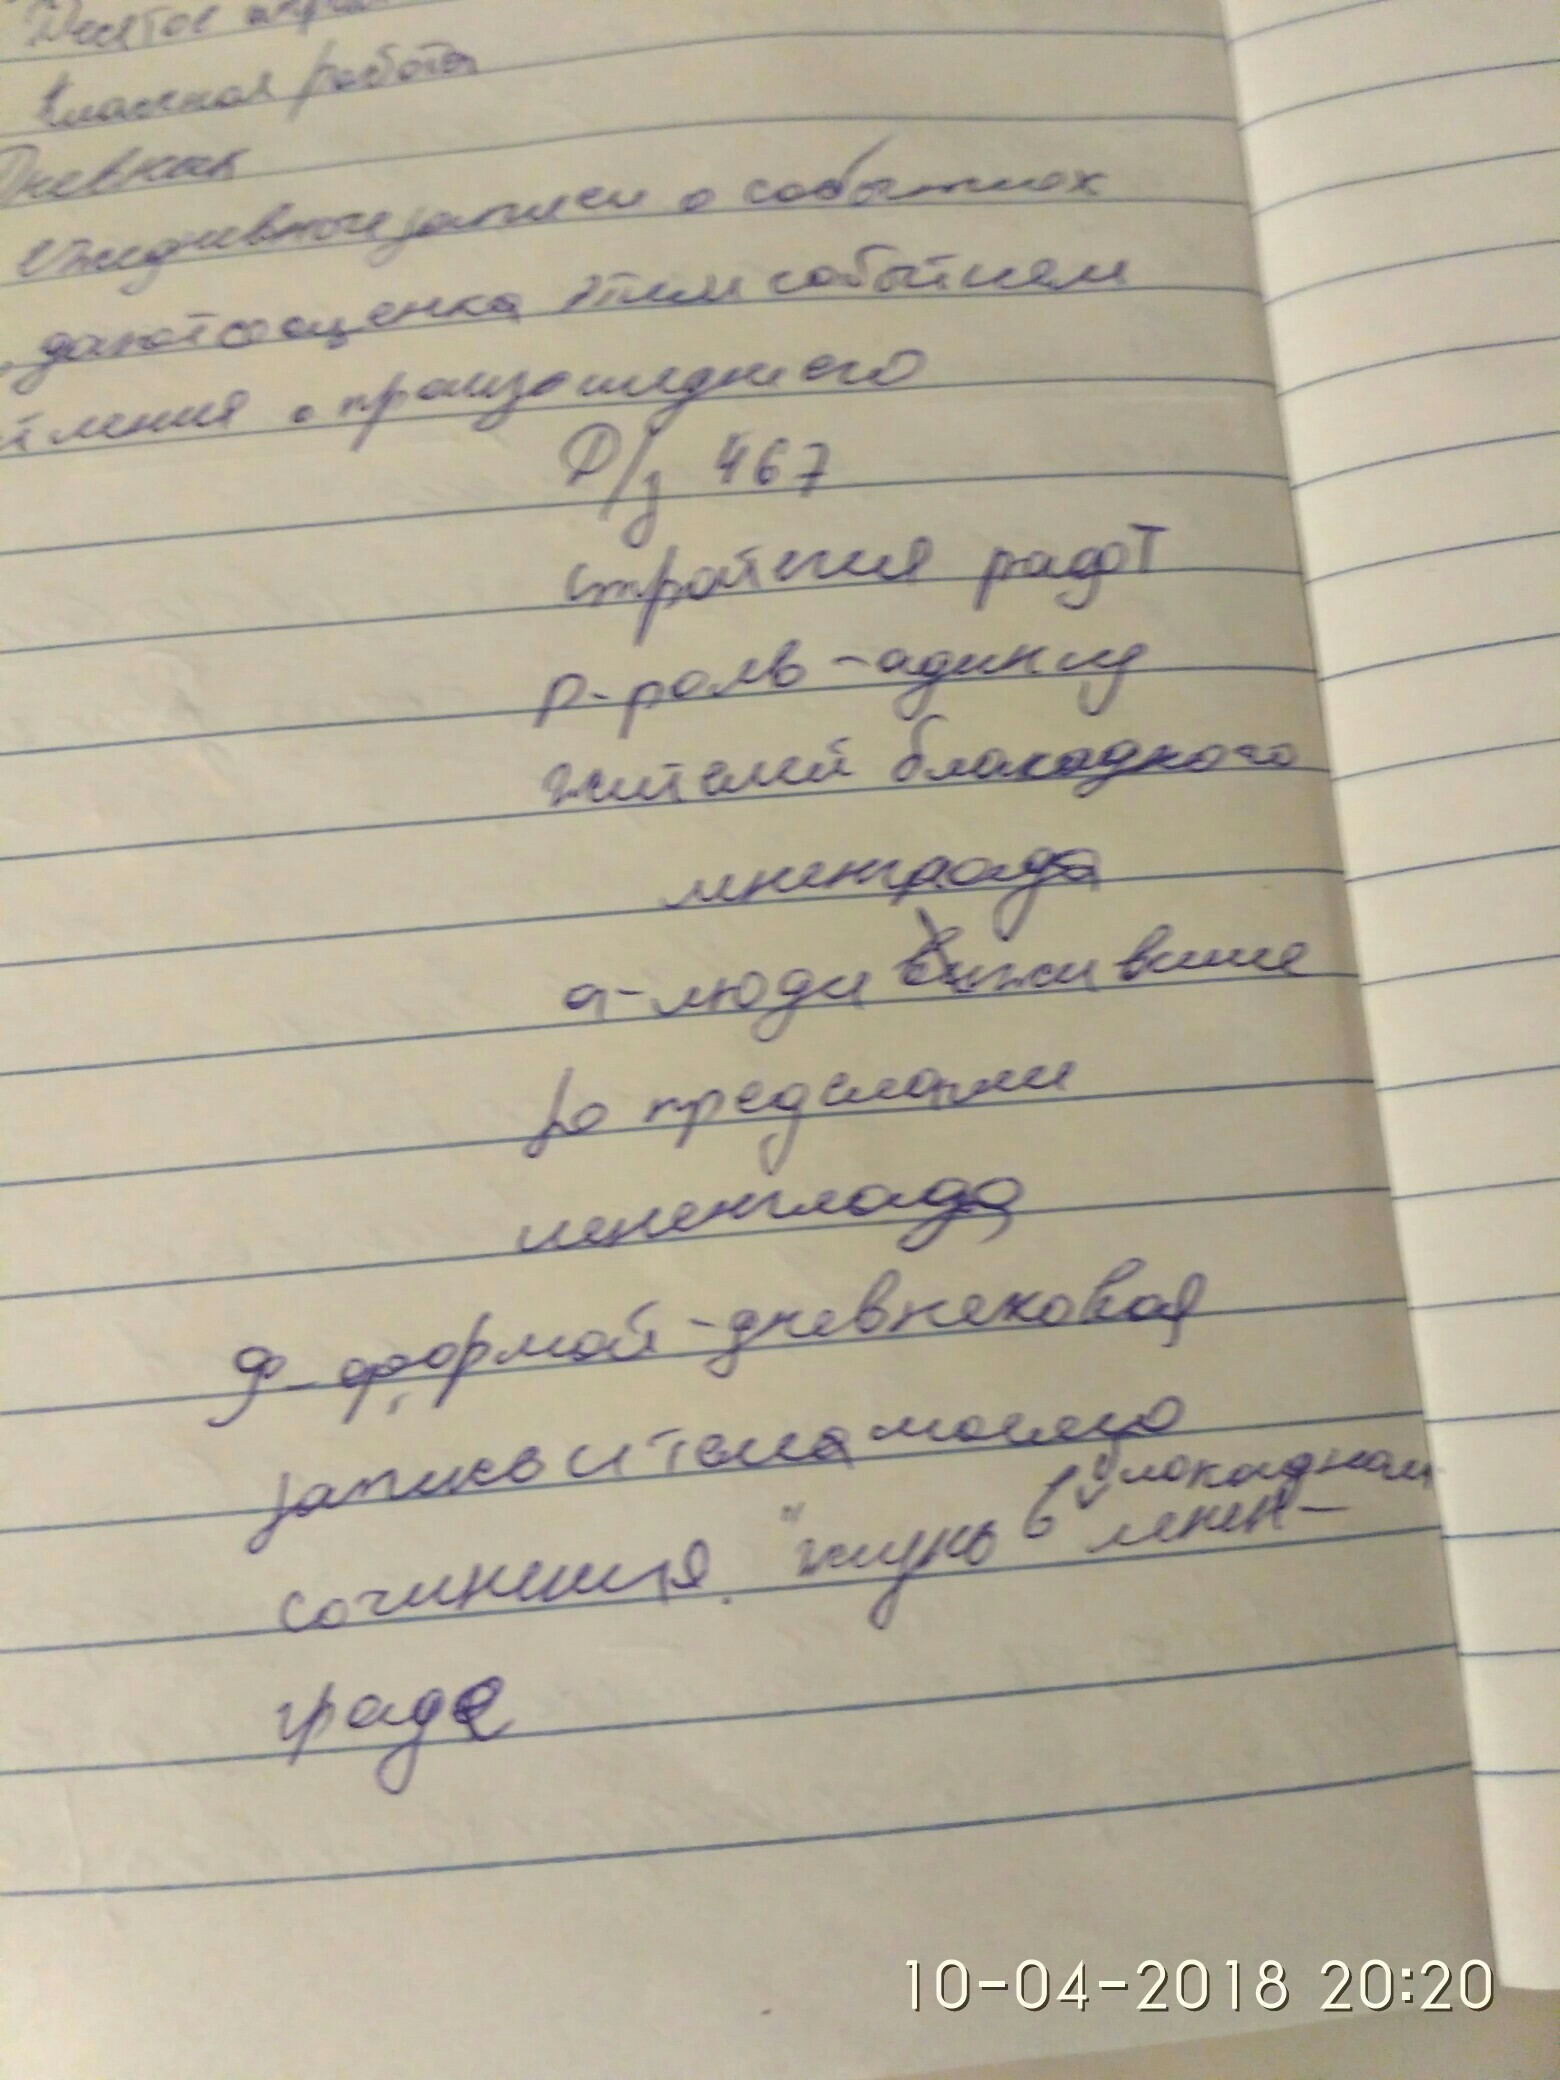 Десятое апреля
Классная работа
Дневник
Ежедневные записи о событиях
даются оценка этим событием
о произошеднего
Д/з 467
стройния рафт
р-роль-адин из
жителей блакадного
лененграда
а-люди выжившие
за пределами
лененграда
ф-формой-дневнековая
запись и тема моего
сочинения. "жизнь в блокадном
ленен-
граде
10-04-2018 20:20